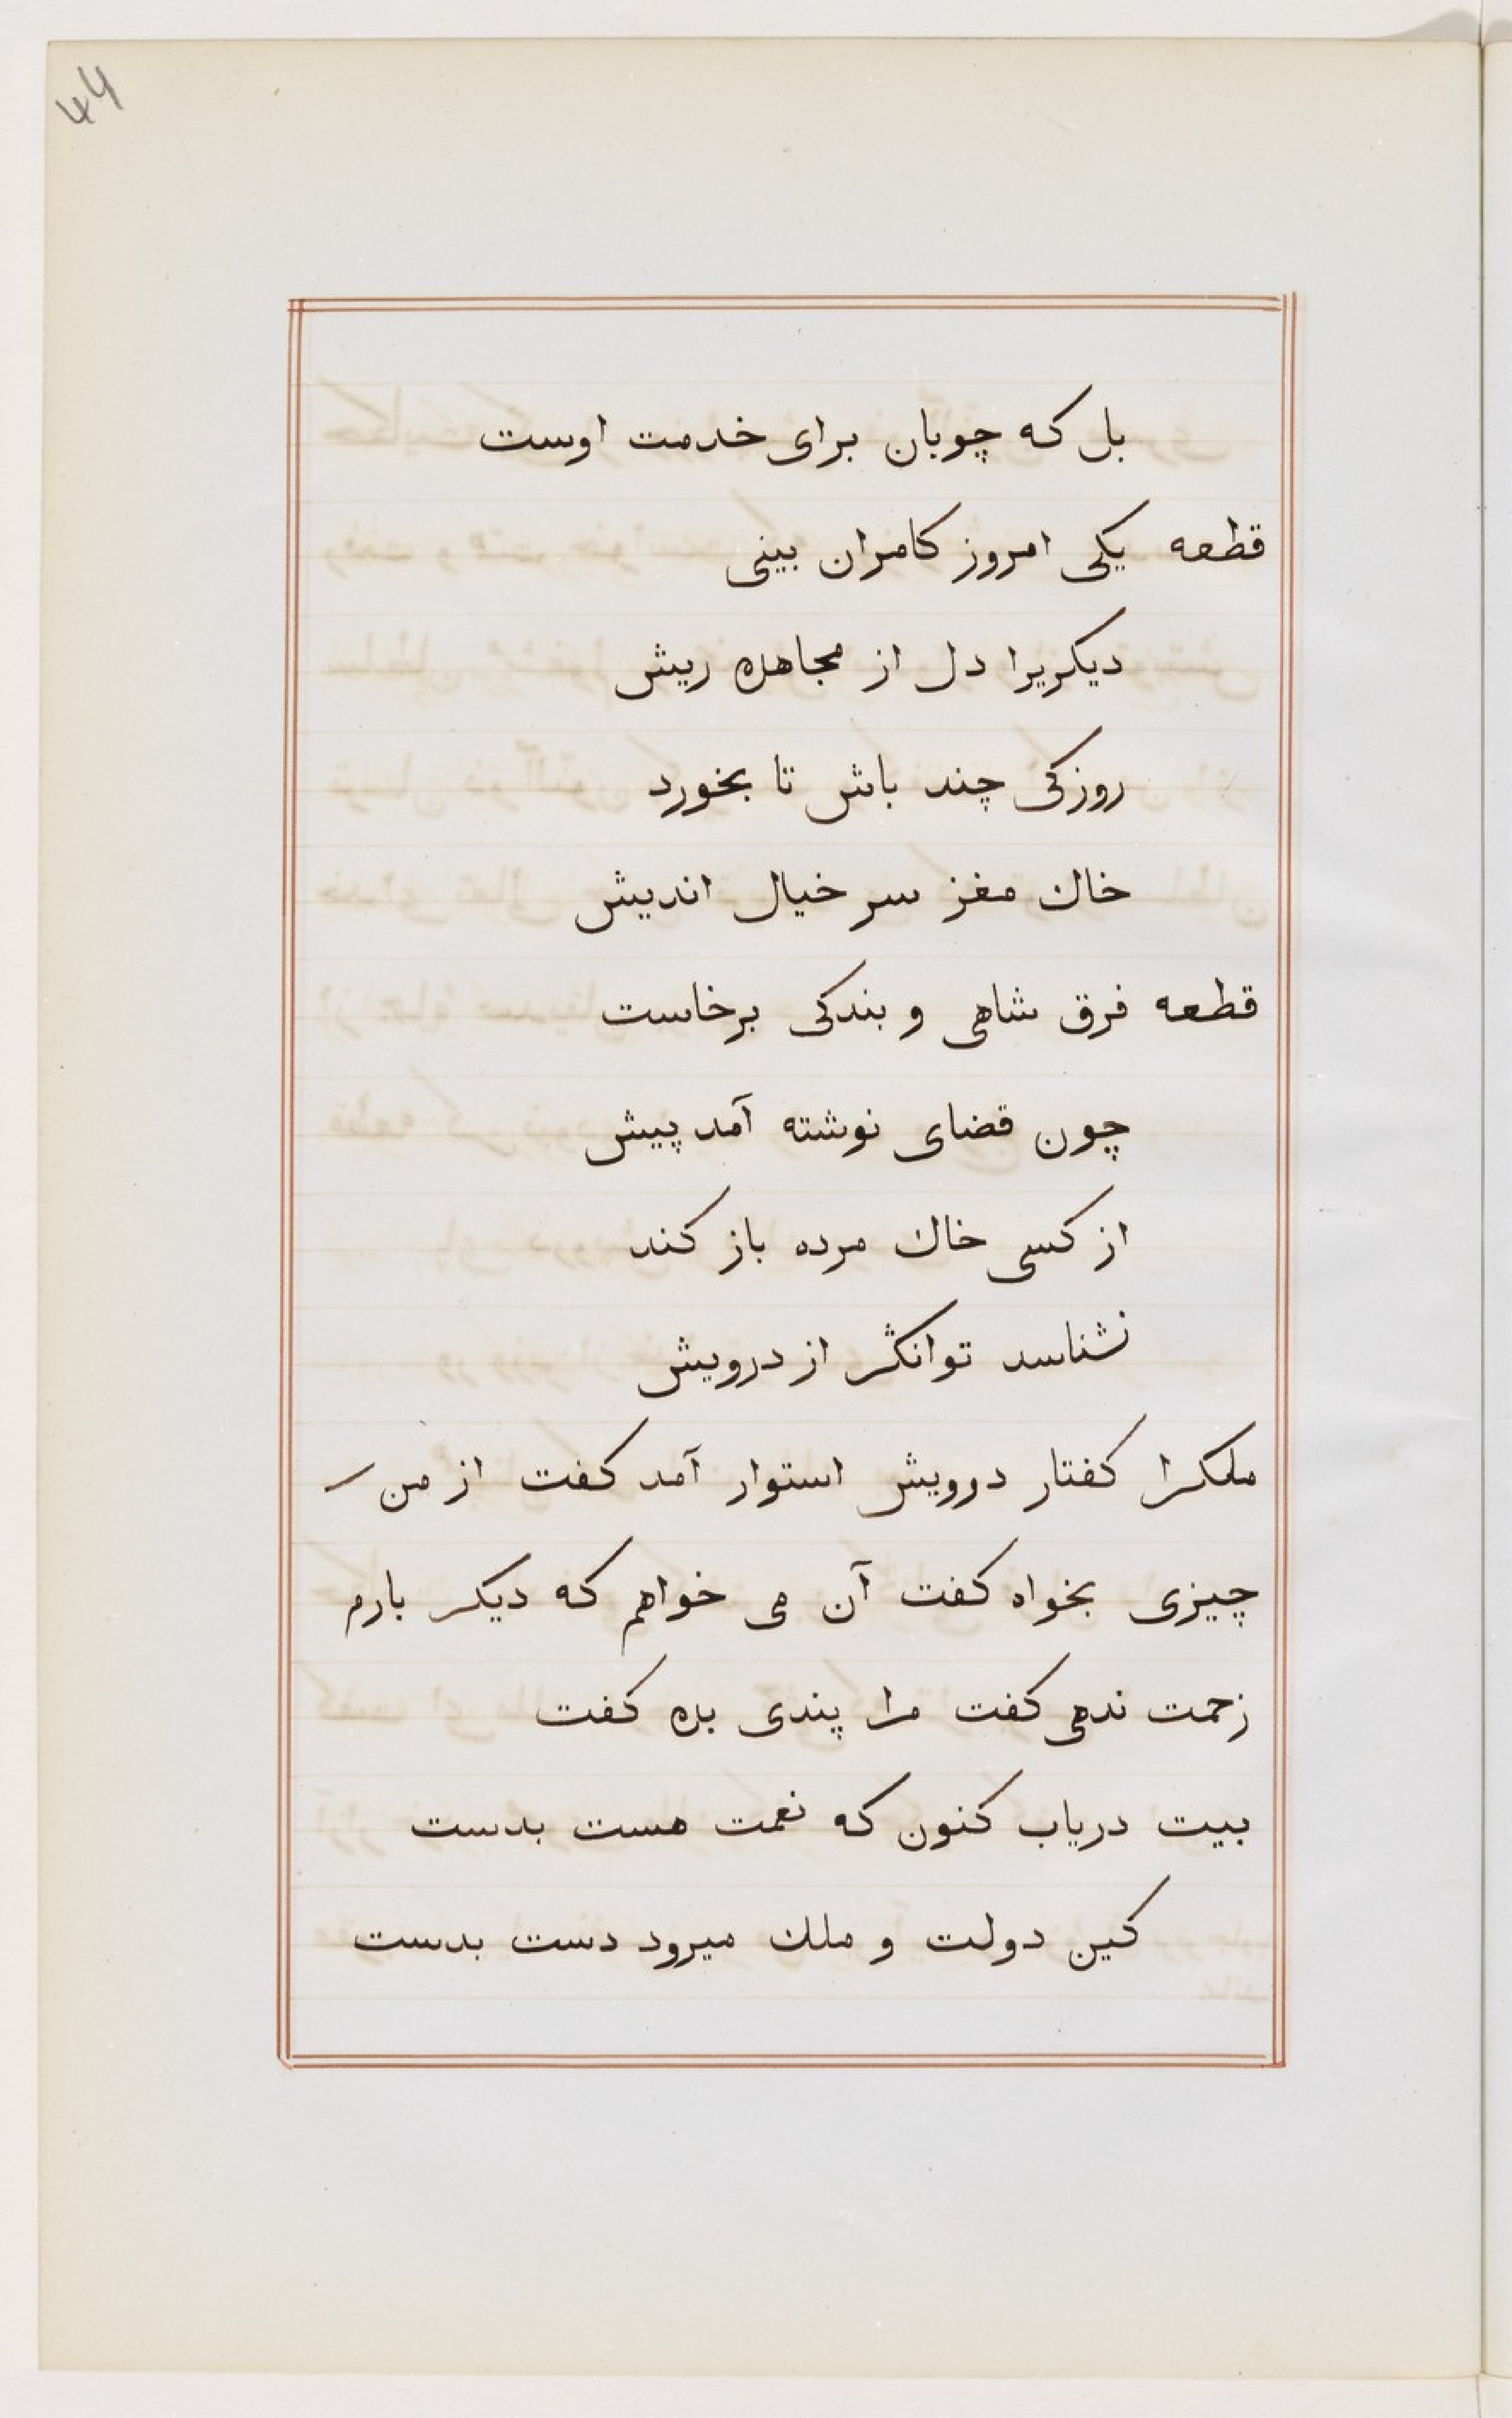 44
بل که چوبان برای خدمت اوست
قطعه یکی امروز کامران بینی
دیکریرا دل از مجاهده ریش
روزکی چند باش تا بخورد
خاك مغز سر خیال اندیش
قطعه فرق شاهی و بندکی برخاست
چون قضای نوشته آمد پیش
از کسی خاك مرده باز کند
نشناسد توانکر از درویش
ملکرا کفتار درویش استوار آمد کفت از من
چیزی بخواه کفت آن می خواهم که دیکر بارم
زحمت ندهی کفت مرا پندی بده کفت
بیت دریاب کنون که نعمت هست بدست
کین دولت و ملك میرود دست بدست